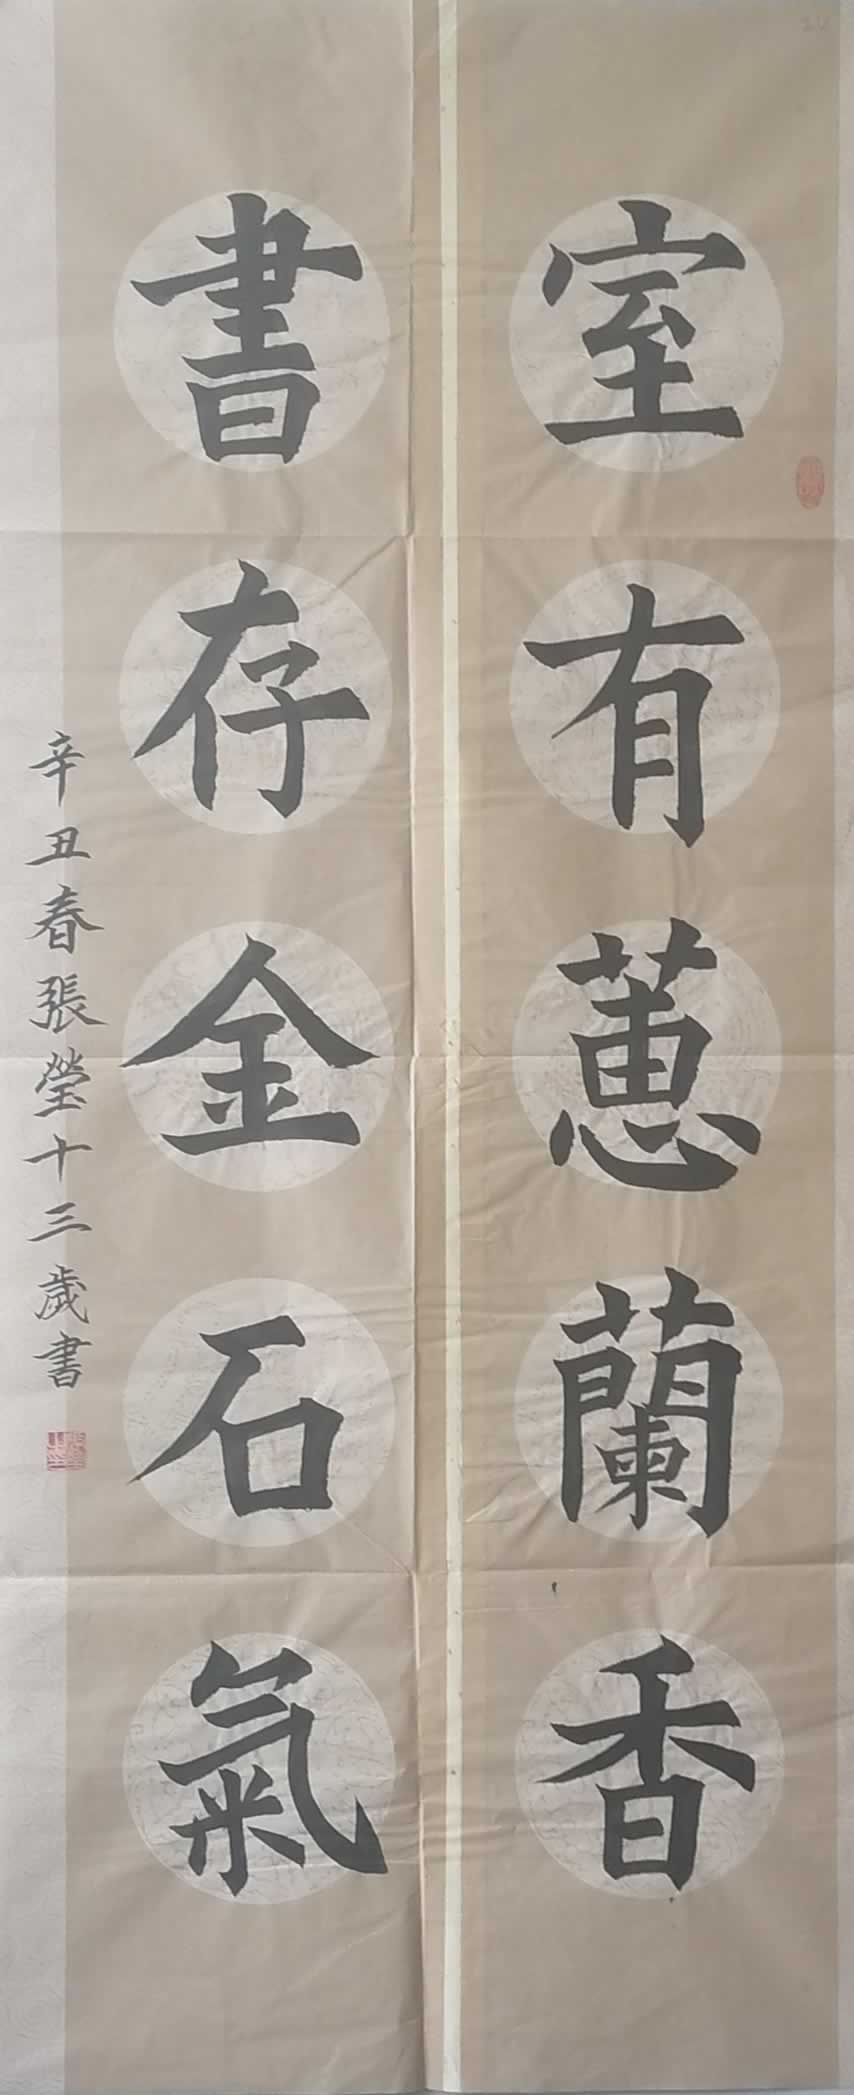 室有蕙蘭香
書存金石氣
辛丑春張瑩十三歲書